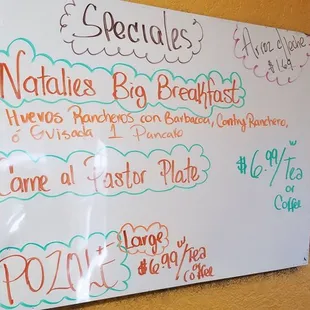 Speciales
Arroz c/ leche
$1.69
Natalies Big Breakfast
Huevos Rancheros con Barbacoa, Contry Ranchero,
ó Guisada 1 Pancake
Carne al Pastor Plate
$6.99/Tea
or
Coffee
POZOLE Large
$6.99 w/Tea
or
Coffee